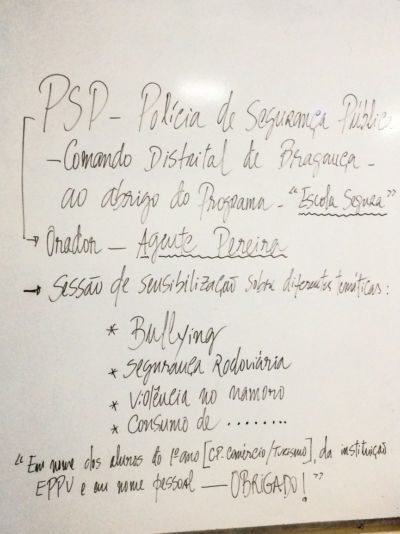 PSP – Polícia de Segurança Públic
– Comando Distrital de Bragança –
ao abrigo do Programa – "Escola Segura"
→ Orador – Agente Pereira
→ Sessão de sensibilização sobre diferentes temáticas:
* Bullying
* Segurança Rodoviária
* Violência no namoro
* Consumo de ........
"Em nome dos alunos do 1º ano [CP. Comércio/Turismo], da instituição
EPPV e em nome pessoal — OBRIGADO!"